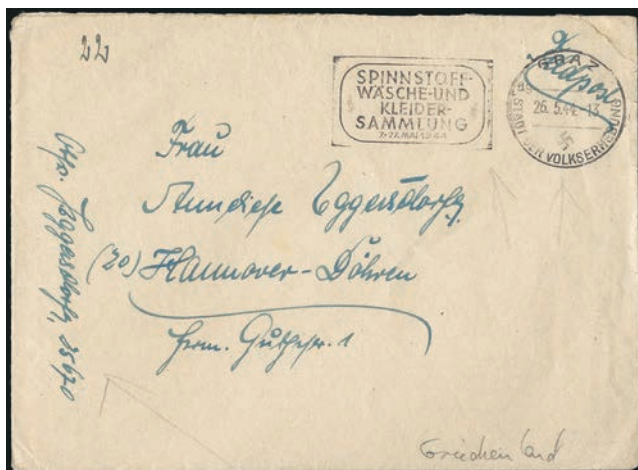 22
Feldpost
SPINNSTOFF-
WÄSCHE-UND
KLEIDER-
SAMMLUNG
7.-27.MAI 1944
GRAZ
26.5.44-13
STADT DER VOLKSERHEBUNG
Frau
Anneliese Eggersdorf
(20) Hannover-Döhren
Herm. Guthestr. 1
Eggersdorf, 25670
Griechenland